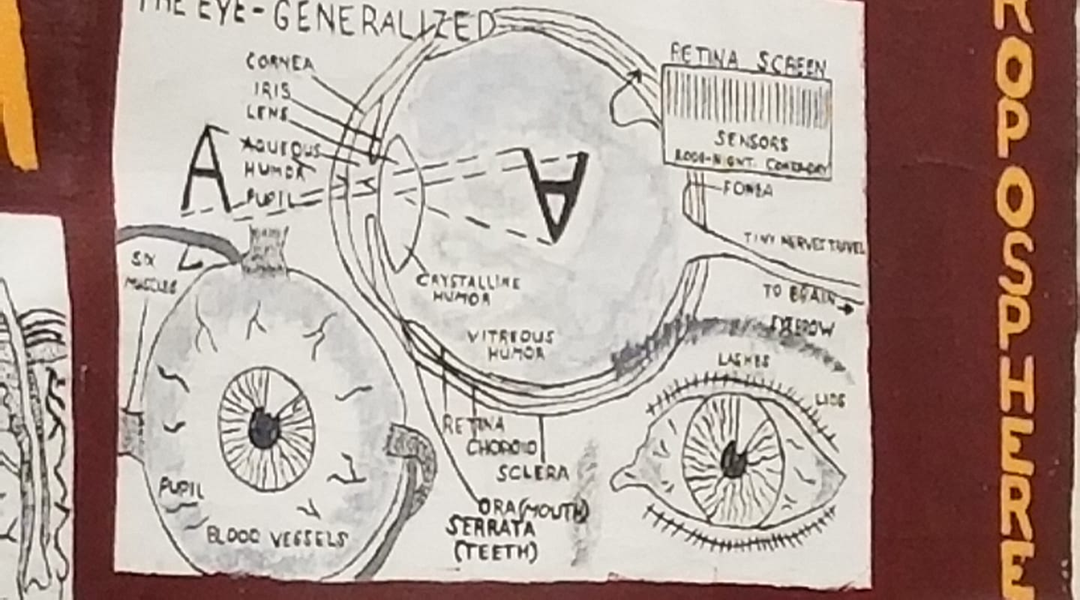 THE EYE-GENERALIZED
CORNEA
IRIS
LENS
AQUEOUS
HUMOR
PUPIL
A
A
RETINA SCREEN
SENSORS
FOVEA
TINY NERVES TRAVEL
TO BRAIN
CRYSTALLINE
HUMOR
VITREOUS
HUMOR
RETINA
CHOROID
SCLERA
ORA (MOUTH)
SERRATA
(TEETH)
SIX
MUSCLES
PUPIL
BLOOD VESSELS
EYEBROW
LASHES
LIDS
ROPOSPHERE